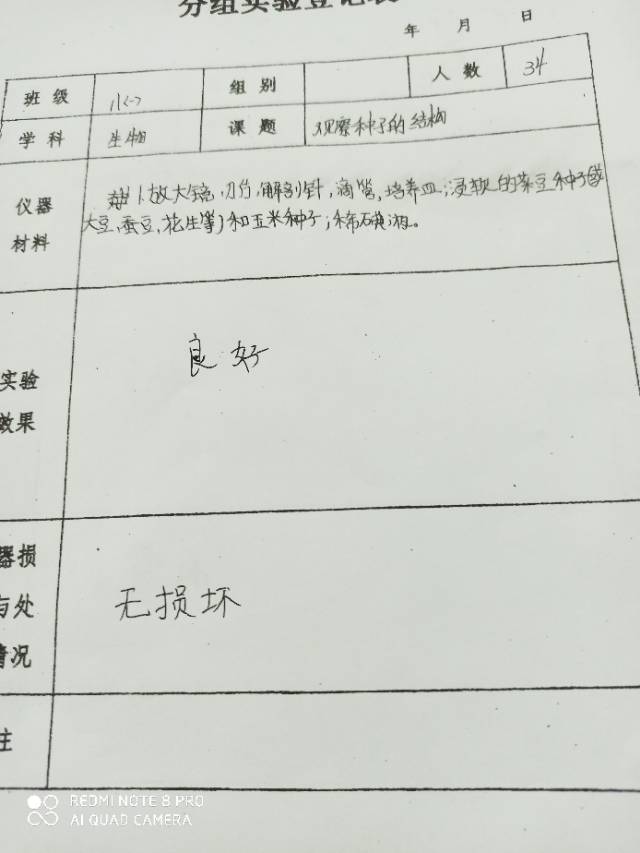 分组实验登记表
年 月 日
班级 八(一) 组别 人数 34
学科 生物 课题 观察种子的结构
仪器
材料
放大镜,刀片,解剖针,滴管,培养皿;浸软的菜豆种子(或
大豆、蚕豆、花生等)和玉米种子;稀碘酒。
实验
效果
良好
器损
与处
情况
无损坏
注
REDMI NOTE 8 PRO
AI QUAD CAMERA